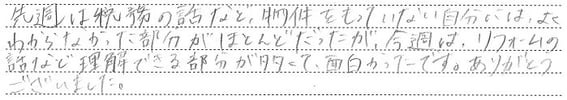 先週は税務の話など、物件をもっていない自分には、よく
わからなかった部分がほとんどだったが、今週は、リフォームの
話など理解できる部分が多くて、面白かったです。ありがとう
ございました。